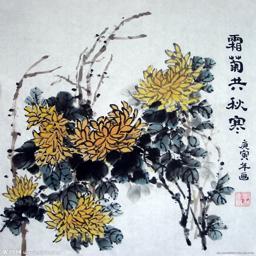 霜菊共秋寒
庚寅年画